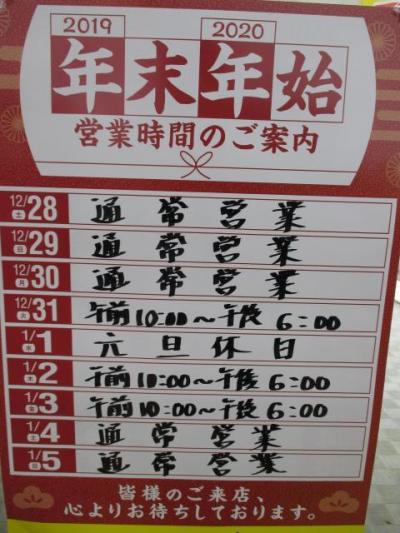 2019 2020
年末年始
営業時間のご案内
12/28 土 通常営業
12/29 日 通常営業
12/30 月 通常営業
12/31 火 午前10:00～午後6:00
1/1 水 元旦休日
1/2 木 午前10:00～午後6:00
1/3 金 午前10:00～午後6:00
1/4 土 通常営業
1/5 日 通常営業
皆様のご来店、
心よりお待ちしております。